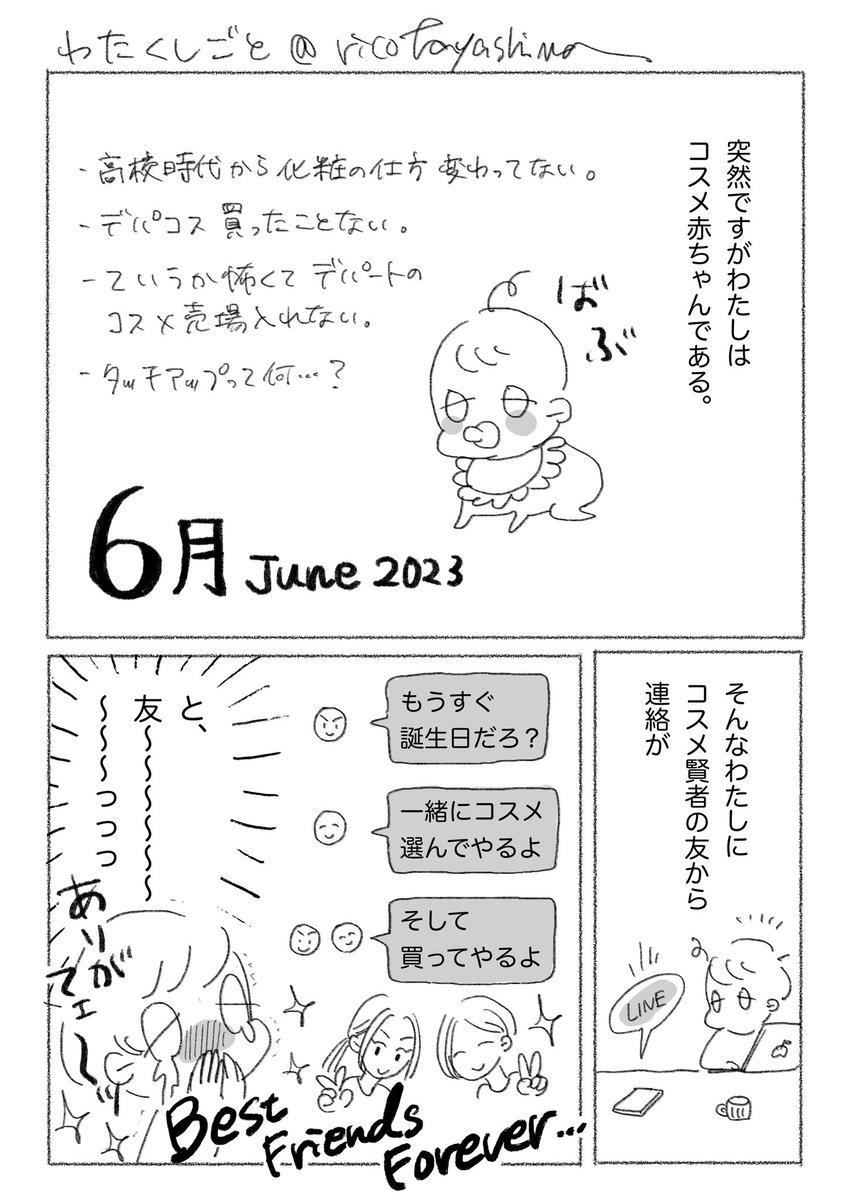 わたくしごと@ricotayashima
突然ですがわたしは
コスメ赤ちゃんである。
ばぶ
- 高校時代から化粧の仕方変わってない。
- デパコス買ったことない。
- ていうか怖くてデパートの
コスメ売場入れない。
- タッチアップって何…?
6月 June 2023
そんなわたしに
コスメ賢者の友から
連絡が
LINE
もうすぐ
誕生日だろ?
一緒にコスメ
選んでやるよ
そして
買ってやるよ
と、
友〜〜〜〜〜〜〜
〜〜〜〜っっっ
ありがてエ〜ッ
Best
Friends
Forever...